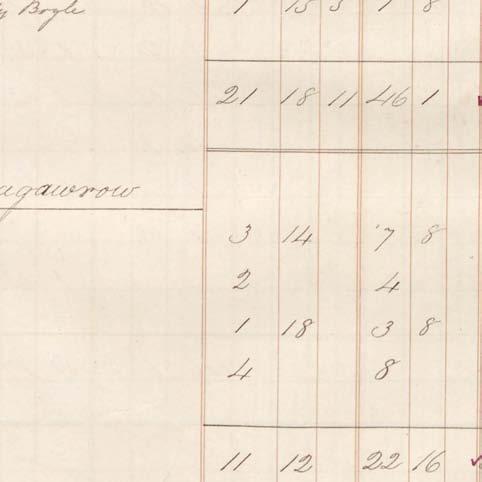 Bogle 1 15 3 7 8
21 18 11 46 1
agawrow
3 14 7 8
2 4
1 18 3 8
4 8
11 12 22 16